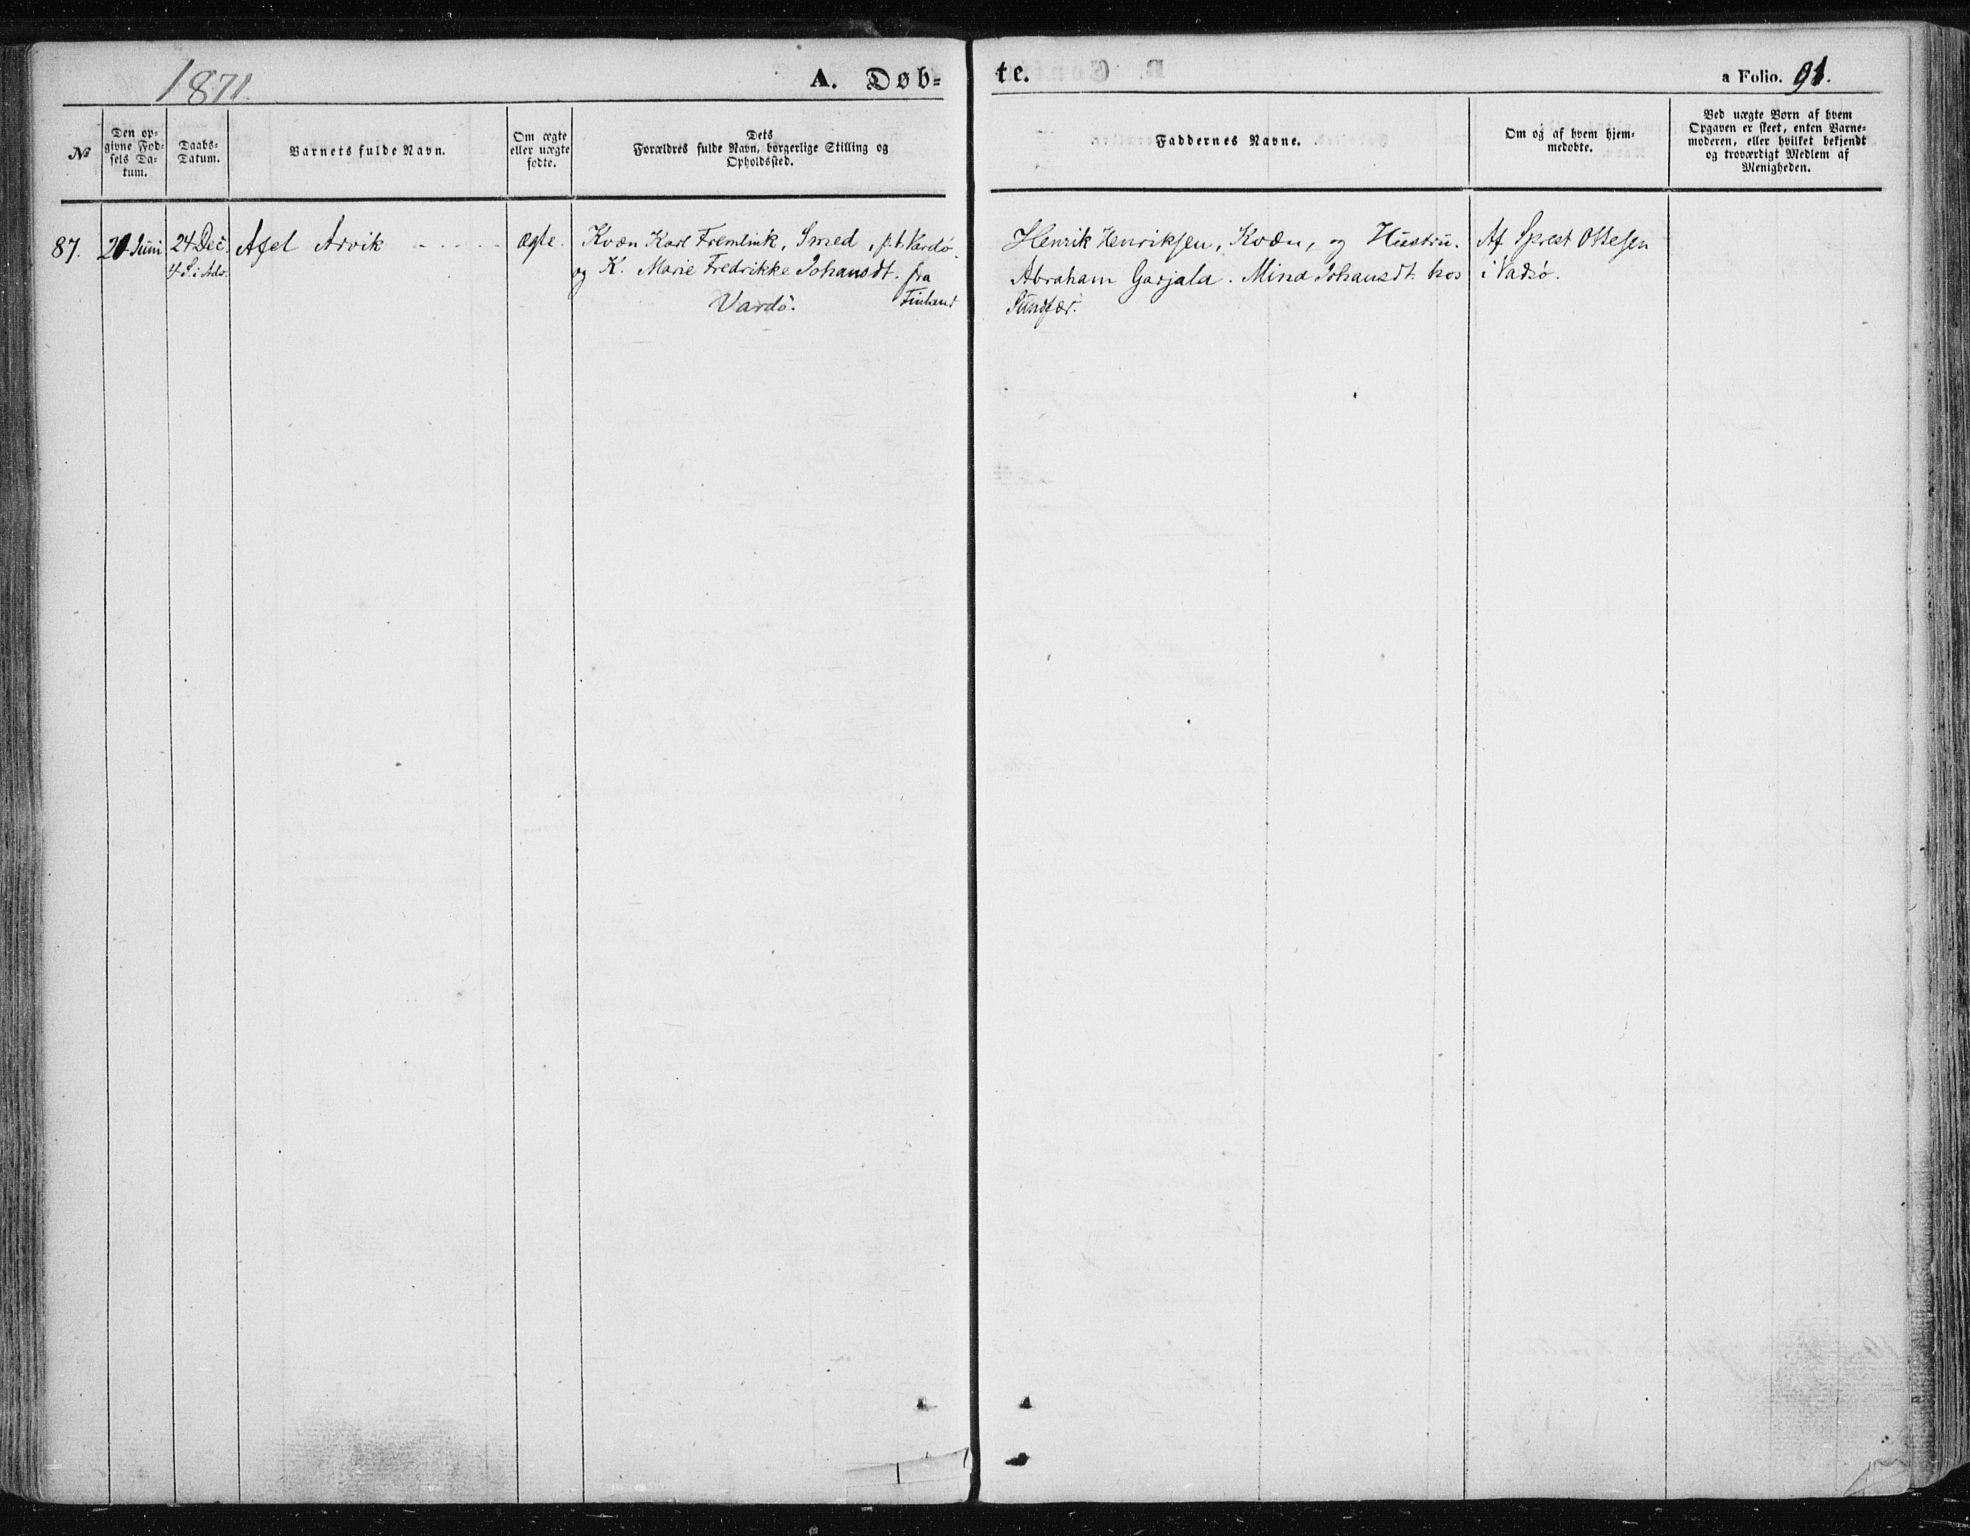 1871.
A. Døb-
te.
a Folio. 91.
No
Den op-
givne Fød-
sels Da-
tum.
Daabs-
Datum.
Barnets fulde Navn.
Om ægte
eller uægte
fødte.
Dets
Forældres fulde Navn, borgerlige Stilling og
Opholdssted.
Faddernes Navne.
Om og af hvem hjem-
medøbte.
Ved uægte Børn af hvem
Opgaven er skeet, enten Barne-
moderen, eller hvilket bekjendt
og troværdigt Medlem af
Menigheden.
87. 21 Juni 24 Dec. Axel Arvik ægte. Kvæn Karl Fremlink, Smed, p.t. Vardø.
4 S. i Adv. og K. Marie Fredrikke Johansdt. fra
Vardø. Finland
Henrik Henriksen, Kvæn, og Hustru. Af Sprest Ottesen
Abraham Garjala. Mina Johansdt. hos i Vadsø.
Sundfær.